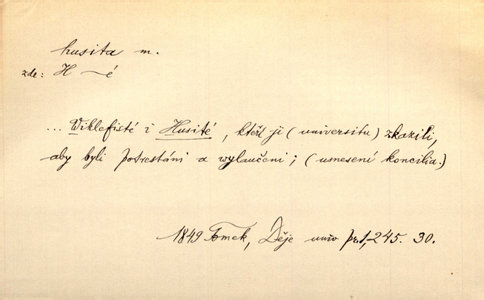 husita m.
zde: H ~é
... Viklefisté i Husité, kteří ji (universitu) zkazili,
aby byli potrestáni a wyloučeni; (usnesení koncilia.)
1849 Tomek, Děje univ pr1, 245. 30.